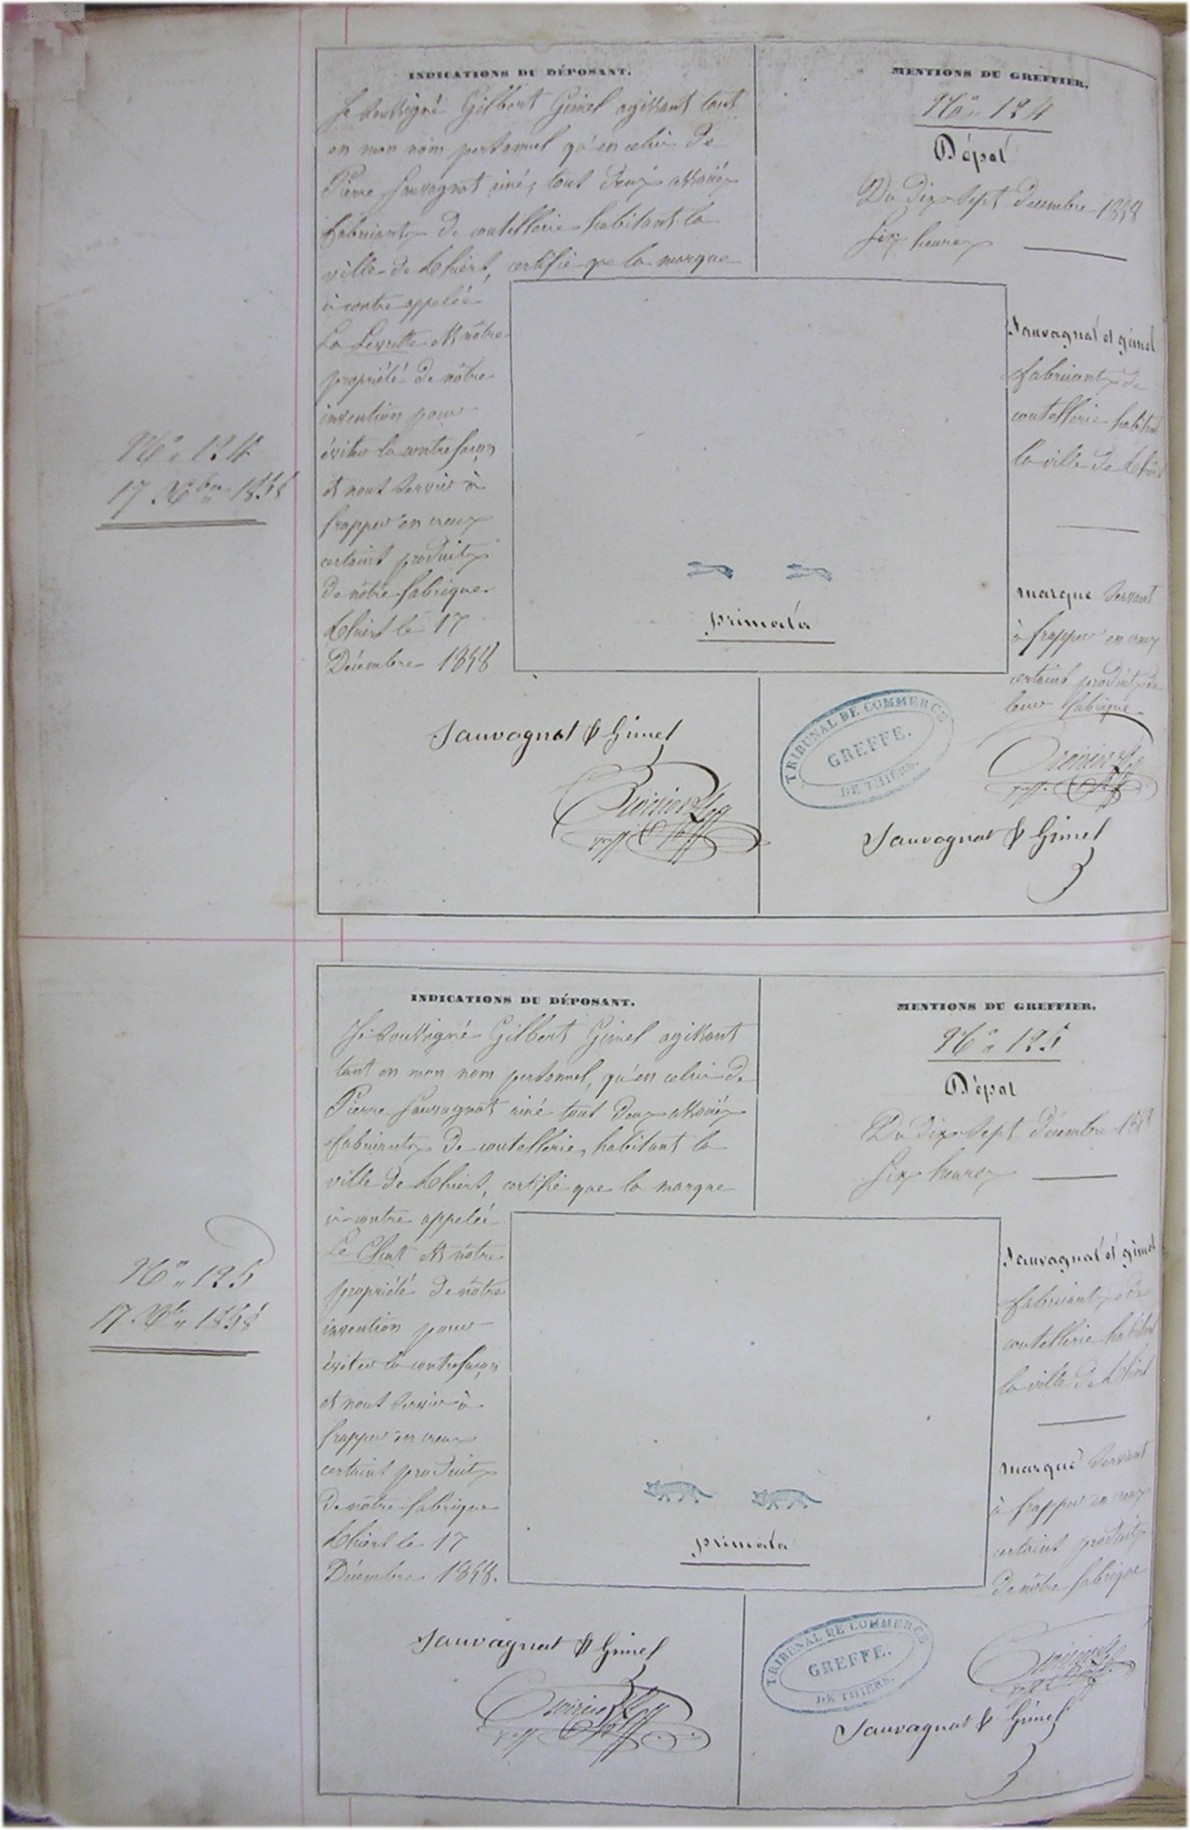 N° 124
17 Xbre 1858
INDICATIONS DU DÉPOSANT.
Je soussigné Gilbert Gimel agissant tant
en mon nom personnel qu'en celui de
Pierre Sauvagnat ainé, tout deux associés
fabricants de coutellerie habitant la
ville de Thiers, certifie que la marque
ci contre appelée
La Levrette est nôtre
propriété de nôtre
invention pour
éviter la contrefaçon
et nous servir à
frapper en creux
certains produits
de nôtre fabrique
Thiers le 17
Décembre 1858
primata
Sauvagnat & Gimel
MENTIONS DU GREFFIER.
N° 124
Dépôt
Du dix sept decembre 1858
six heures
Sauvagnat et gimel
fabricants de
coutellerie habitant
la ville de Thiers
marque servant
à frapper en creux
certains produits de
leur fabrique
TRIBUNAL DE COMMERCE
GREFFE.
DE THIERS.
Sauvagnat & Gimel
N° 125
17 Xbre 1858
INDICATIONS DU DÉPOSANT.
Je soussigné Gilbert Gimel agissant
tant en mon nom personnel, qu'en celui de
Pierre Sauvagnat ainé tout deux associés
fabricants de coutellerie, habitant la
ville de Thiers, certifie que la marque
ci-contre appelée
Le Chat est nôtre
propriété de nôtre
invention pour
éviter la contrefaçon
et nous servir à
frapper en creux
certains produits
de nôtre fabrique
Thiers le 17
Décembre 1858.
primata
Sauvagnat & Gimel
MENTIONS DU GREFFIER.
N° 125
Dépôt
Du dix sept décembre 1858
six heures
Sauvagnat et gimel
fabricants de
coutellerie habitant
la ville de Thiers
marque servant
à frapper en creux
certains produits
de nôtre fabrique
TRIBUNAL DE COMMERCE
GREFFE.
DE THIERS.
Sauvagnat & Gimel